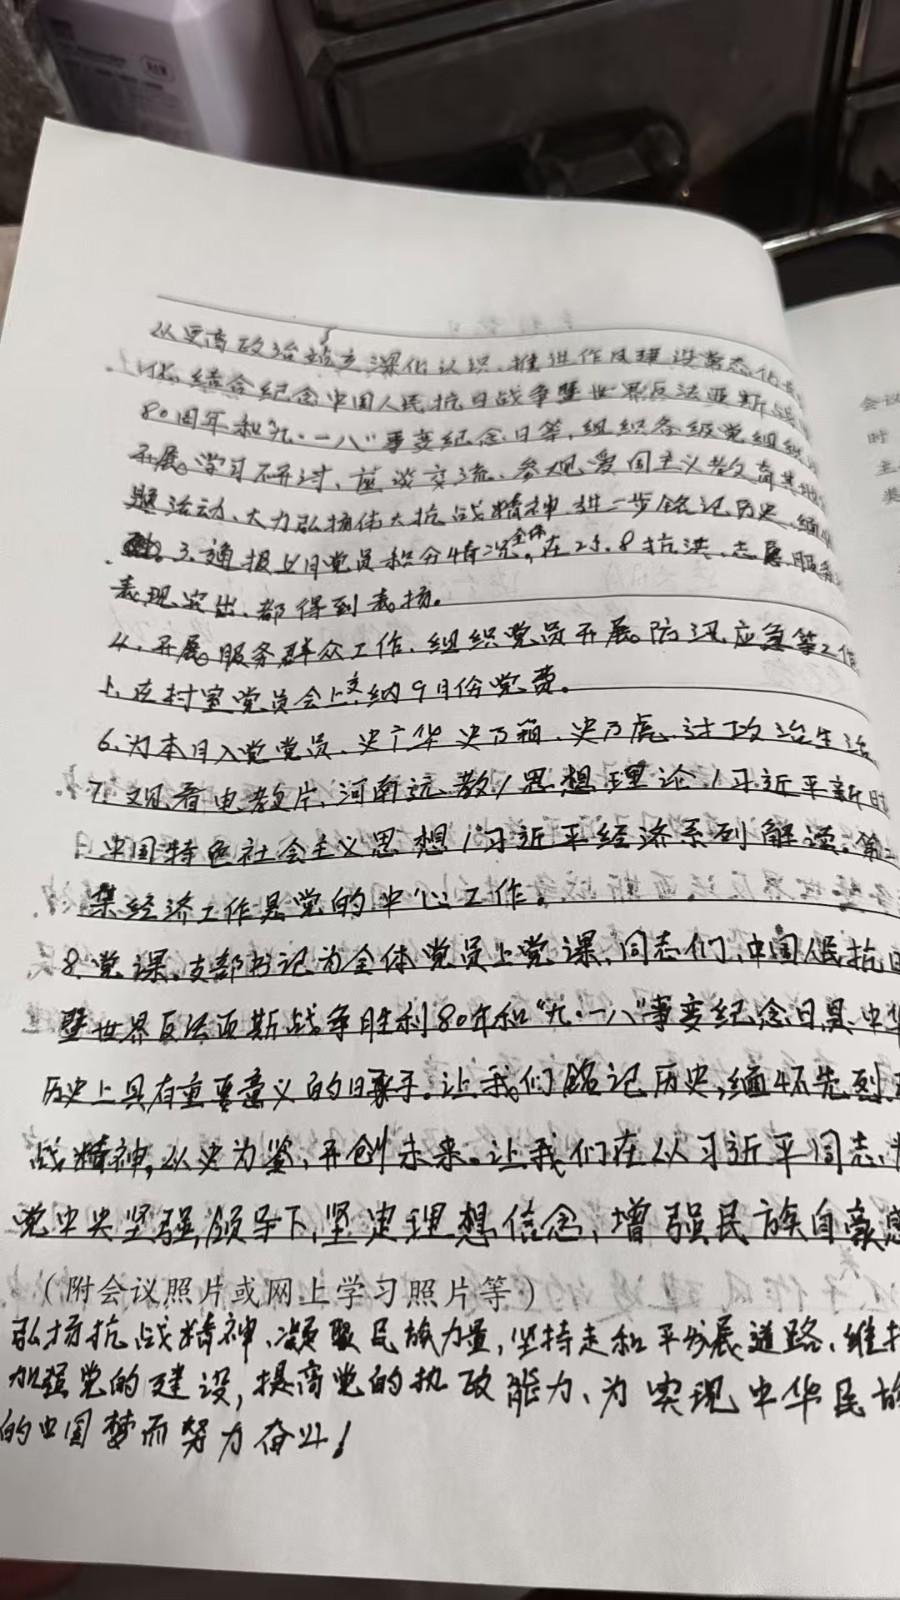 从更高政治站立深化认识、推进作风建设常态化
结合纪念中国人民抗日战争暨世界反法西斯战
80周年和“九·一八”事变纪念日等,组织各级党组织
开展学习研讨、座谈交流、参观爱国主义教育基地
题活动、大力弘扬伟大抗战精神、进一步铭记历史、缅
3.通报上月党员积分情况,全体在25.8抗洪、志愿服务
表现突出、都得到表扬。
4.开展服务群众工作、组织党员开展防汛应急等工作
在村室党员会上交纳9月份党费。
6.为本月入党党员、史广华 史万箱、史万虎 过政治生活
7.观看电教片、河南远教/思想理论/习近平新时
中国特色社会主义思想/习近平经济系列解读:第二
集经济工作是党的中心工作。
8.党课、支部书记为全体党员上党课、同志们、中国人民抗日
暨世界反法西斯战争胜利80年和“九·一八”事变纪念日是中华
历史上具有重要意义的日子。让我们铭记历史,缅怀先烈
战精神,以史为鉴、开创未来。让我们在以习近平同志为
党中央坚强领导下、坚定理想信念、增强民族自豪感
(附会议照片或网上学习照片等)
弘扬抗战精神、凝聚民族力量,坚持走和平发展道路、维护
加强党的建设,提高党的执政能力、为实现中华民族
的中国梦而努力奋斗!
会议
时
主
类